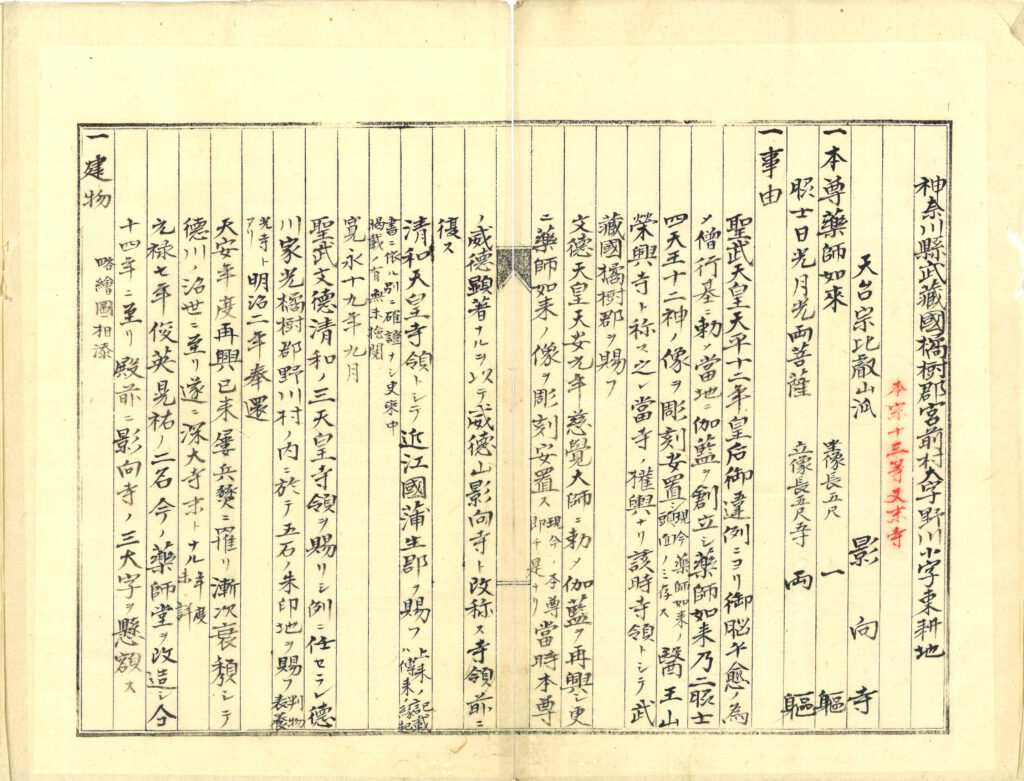 神奈川縣武藏國橘樹郡宮前村大字野川小字東耕地
本宗十三等又末寺
天台宗比叡山派 影向寺
一本尊藥師如來 坐像長五尺 一軀
脇士日光月光両菩薩 立像長五尺五寸 両軀
一事由
聖武天皇天平十二年皇后御違例ニヨリ御脳平愈ノ為
メ僧行基ニ勅シ當地ニ伽藍ヲ創立シ藥師如来乃二脇士
四天王十二神ノ像ヲ彫刻安置シ 現今藥師如来ノ頭面ノミ存ス 醫王山
榮興寺ト称ス之レ當寺ノ権輿ナリ該時寺領トシテ武
藏國橘樹郡ヲ賜フ
文德天皇天安元年慈覺大師ニ勅シ伽藍ヲ再興シ更
ニ藥師如来ノ像ヲ彫刻安置ス 現今ノ本尊即チ是ナリ 當時本尊
ノ威德顕著ナルヲ以テ威德山影向寺ト改称ス寺領前ニ
復ス
清和天皇寺領トシテ近江國蒲生郡ヲ賜フ 上来ノ記載ハ傳来ノ縁起
書ニ依ル別ニ確證ナシ史乘中掲載ノ有無未検閲
寛永十九年九月
聖武文德清和ノ三天皇寺領ヲ賜リシ例ニ任セラレ德
川家光橘樹郡野川村ノ内ニ於テ五石ノ朱印地ヲ賜フ 判物表装
光寺トアリ 明治二年奉還
天安年度再興已来屡兵燹ニ罹リ漸次衰頽シテ
德川ノ治世ニ至リ遂ニ深大寺末トナル 年度未詳
元禄七年俊英晃祐ノ二名今ノ藥師堂ヲ改造シ仝
十四年ニ至リ殿前ニ影向寺ノ三大字ヲ懸額ス
一建物 略繪圖相添